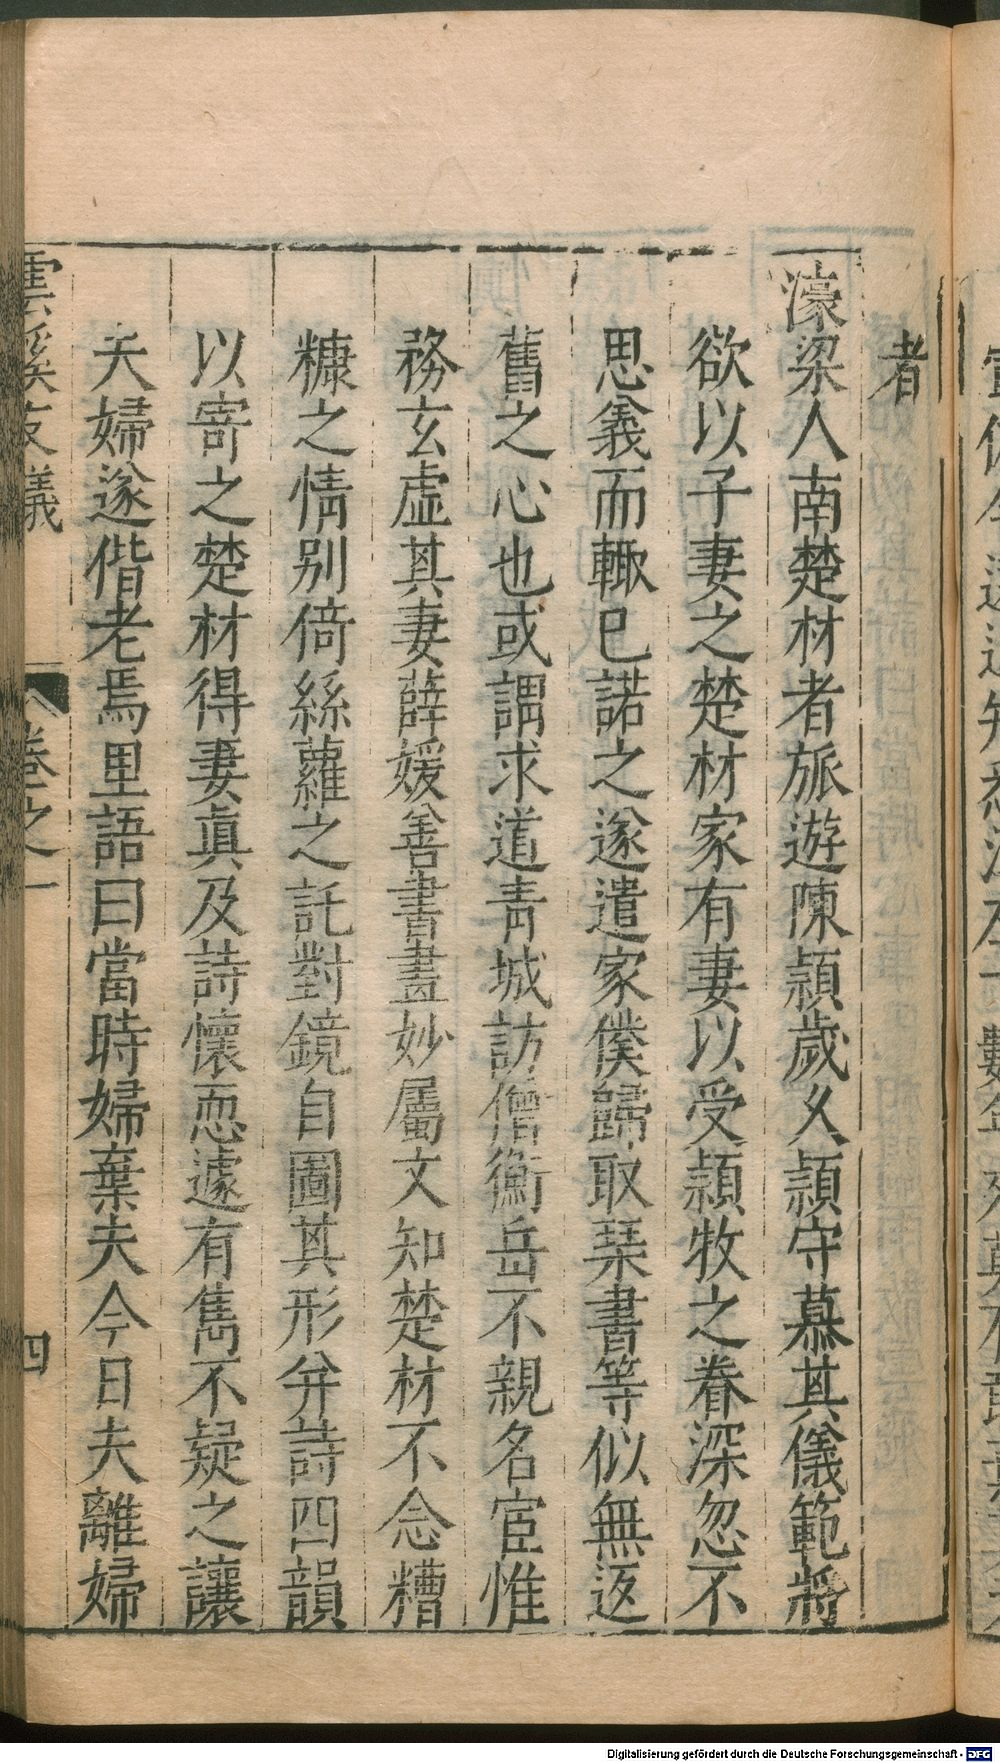 者
濠梁人南楚材者旅遊陳潁歲久潁守慕其儀範將
欲以子妻之楚材家有妻以受潁牧之眷深忽不
思義而輙已諾之遂遣家僕歸取琴書等似無返
舊之心也或謂求道青城訪僧衡岳不親名宦惟
務玄虛其妻薛媛善書畫妙屬文知楚材不念糟
糠之情别倚絲蘿之託對鏡自圖其形并詩四韻
以寄之楚材得妻眞及詩懷恧遽有雋不疑之讓
夫婦遂偕老焉里語曰當時婦棄夫今日夫離婦
雲溪友議 卷之一 四
Digitalisierung gefördert durch die Deutsche Forschungsgemeinschaft - DFG